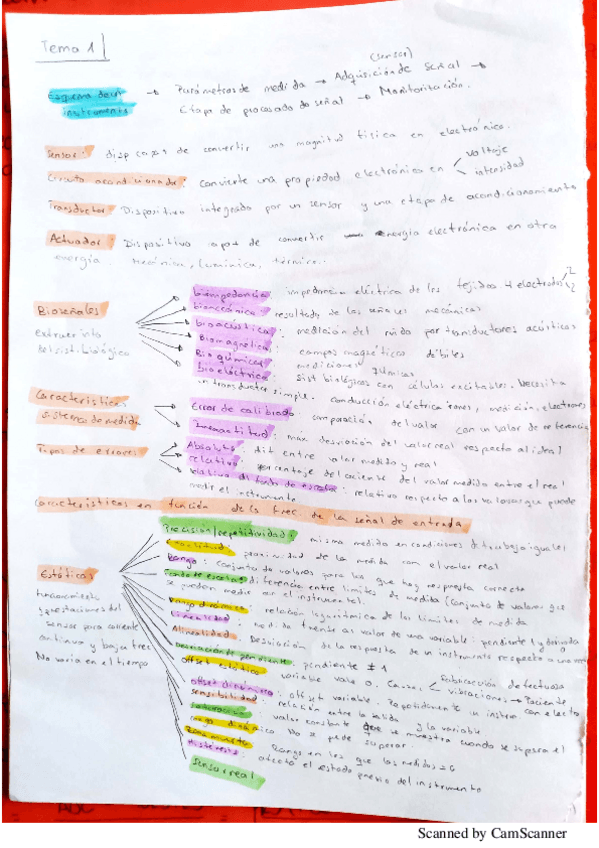 Tema 1
(sensor)
Esquema de un instrumento → Parámetros de medida → Adquisición de señal →
Etapa de procesado de señal → Monitorización.
Sensor: disp capaz de convertir una magnitud física en electrónica.
Circuito acondicionador: convierte una propiedad electrónica en voltaje
intensidad
Transductor: Dispositivo integrado por un sensor y una etapa de acondicionamiento
Actuador: Dispositivo capaz de convertir energía electrónica en otra
energía mecánica, lumínica, térmica.
Bioseñales
bioimpedancia: impedancia eléctrica de los tejidos
biomecánica: resultado de las señales mecánicas
bioacústica: medición del ruido por transductores acústicos
Biomagnética: campos magnéticos débiles
Bioquímica: mediciones químicas
bioeléctrica: sist biológicos con células excitables. Necesita
un transductor simple. conducción eléctrica iones, medición, electrones
Características
sistema de medida
Error de calibrado: comparación del valor con un valor de referencia
Inexactitud: max desviación del valor real respecto al ideal
Tipos de errores:
Absoluto: dif entre valor medido y real
relativo: porcentaje del cociente del valor medido entre el real
relativo al fondo de escala: relativo respecto a los valores que puede
medir el instrumento
Características en función de la frec. de la señal de entrada
Estáticas
funcionamiento
y prestaciones del
sensor para corriente
continua y baja frec
No varia en el tiempo
Precisión/repetitividad: misma medida en condiciones de trabajo iguales
Exactitud: proximidad de la medida con el valor real
Rango: conjunto de valores para los que hay respuesta correcta
Fondo de escala: diferencia entre limites de medida (conjunto de valores que
se pueden medir con el instrumento).
Rango dinámico: relación logarítmica de los límites de medida
Linealidad: medida frente al valor de una variable: pendiente 1 y derivada
Alinealidad: Desviación de la respuesta de un instrumento respecto a una recta
Desviación de pendiente: pendiente ≠ 1
Offset estático: variable vale 0. Causas: Fabricación defectuosa
vibraciones → Paciente
offset dinámico: offset variable. Repetidamente un instru con electro
sensibilidad: relación entre la salida y la variable
saturación: valor constante que se muestra cuando se supera el
rango dinámico. No se puede superar.
Zona muerta: Rango en los que las medidas = 0
Histéresis: afecta el estado previo del instrumento
Sensor real
Scanned by CamScanner